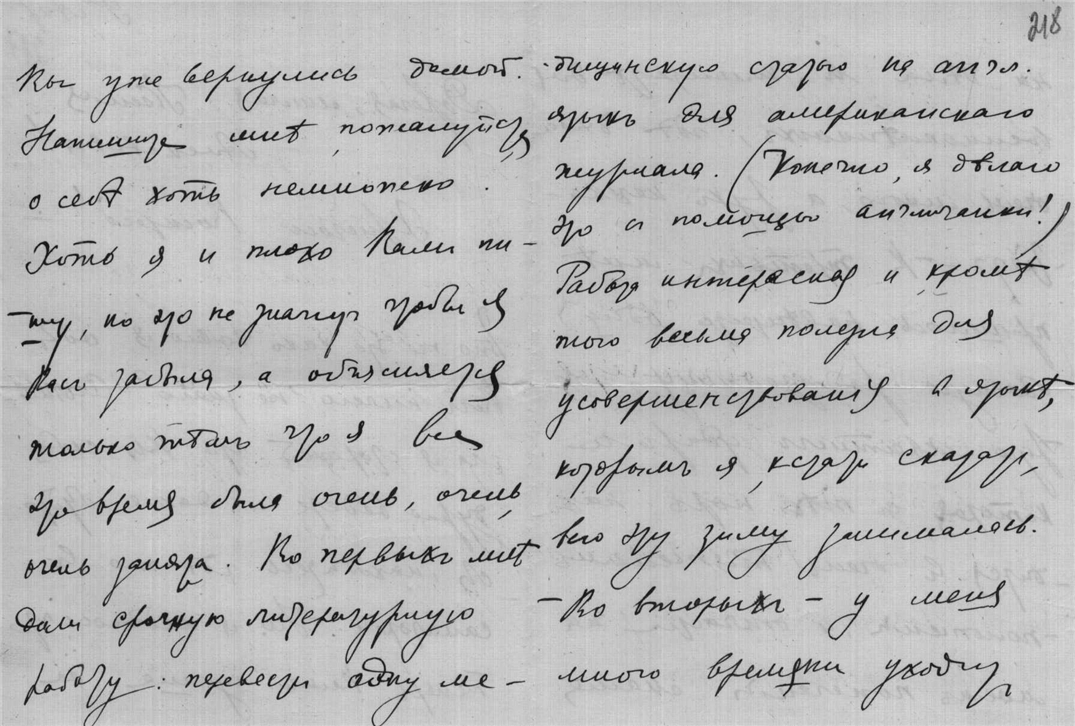 218
Вы уже вернулись домой.
Напишите мнѣ, пожалуйста,
о себѣ хоть немножко.
Хоть я и плохо Вамъ пи-
-шу, но это не значитъ чтобы я
Васъ забыла, а объясняется
только тѣмъ что я все
это время была очень, очень,
очень занята. Во первыхъ мнѣ
дали срочную литературную
работу: перевести одну ме-
-дицинскую статью на англ.
языкъ для американскаго
журнала. (Конечно, я дѣлаю
это съ помощью англичанки!)
Работа интересная и кромѣ
того весьма полезна для
усовершенствованія въ языкѣ,
которымъ я, кстати сказать,
всю эту зиму занималась.
- Во вторыхъ - у меня
много времени уходитъ